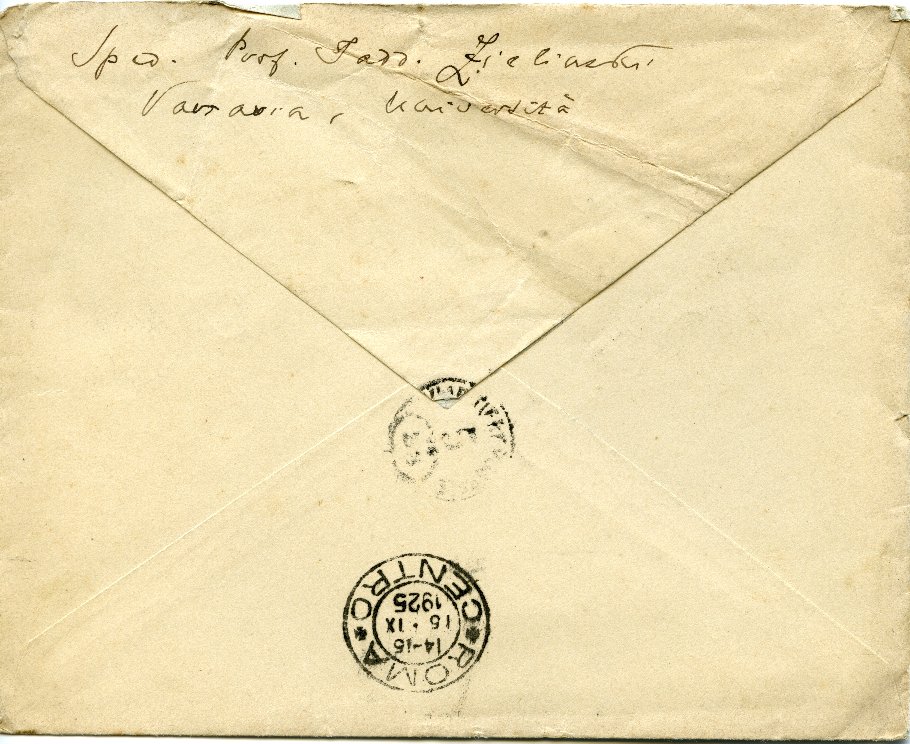 Sped. Prof. Tadd. Zieliński
Varsavia, Università
ROMA CENTRO
14-15
16 · IX
1925